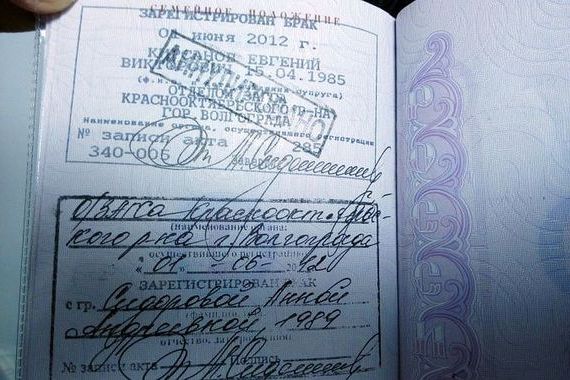 СЕМЕЙНОЕ ПОЛОЖЕНИЕ
ЗАРЕГИСТРИРОВАН БРАК
01 июня 2012 г.
ЕВГЕНИЙ
ВИКТОРОВИЧ 15.04.1985
супруга)
ОТДЕЛОМ
КРАСНООКТЯБРЬСКОГО Р-НА
ГОР. ВОЛГОГРАДА
Наименование органа, осуществившего регистрацию
№ записи акта 285
340-006 Заверено
О/ЗАГСа Краснооктябрьс-
(наименование органа:
кого р-на г. Волгограда
осуществившего регистрацию)
"01" -06- 2012
ЗАРЕГИСТРИРОВАН БРАК
с гр. Сидоровой Анной
Андреевной, 1989
отчество, дата рождения)
№ записи акта Подпись